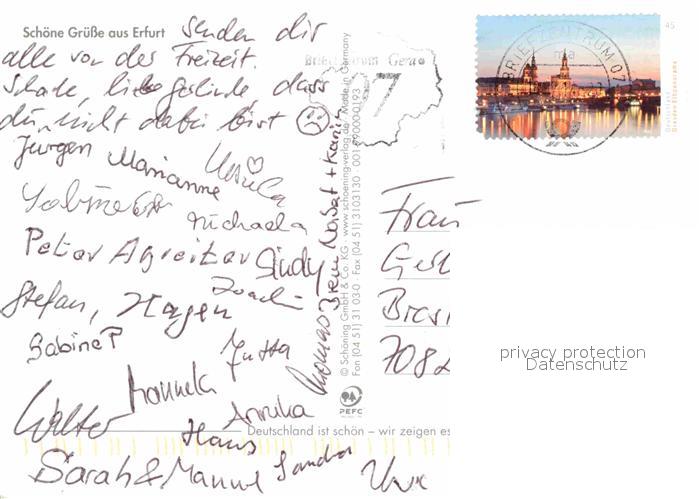 Schöne Grüße aus Erfurt senden dir
alle von der Freizeit.
Schade liebe Gerlinde dass
du nicht dabei bist
Jürgen Marianne Ursula
Sabine
Michaela
Peter Agreiter Sindy
Joachim
Stefan, Hagen
Sabine P
Jutta
Manuela
Annika
Walter
Hans
Sarah & Manuel Sandra Uwe
Thomas Norbert + Karin
© Schöning GmbH & Co. KG · www.schoening-verlag.de · Made in Germany
Fon (04 51) 31 03-0 · Fax (04 51) 3103130
PEFC
Deutschland ist schön – wir zeigen es
Briefzentrum Gera
07
BRIEFZENTRUM 07
45
Deutschland
Dresden Elbpanorama
Frau
Gerl
7082
privacy protection
Datenschutz